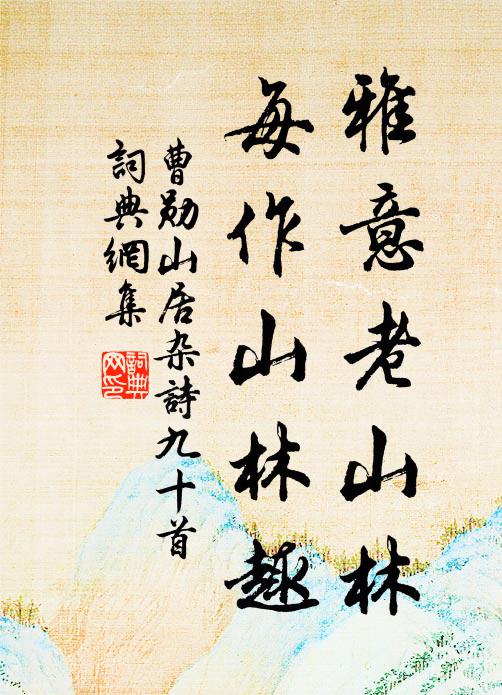 雅意老山林
每作山林趣
曹勋山居杂诗九十首
詞典網集
詞典
网印